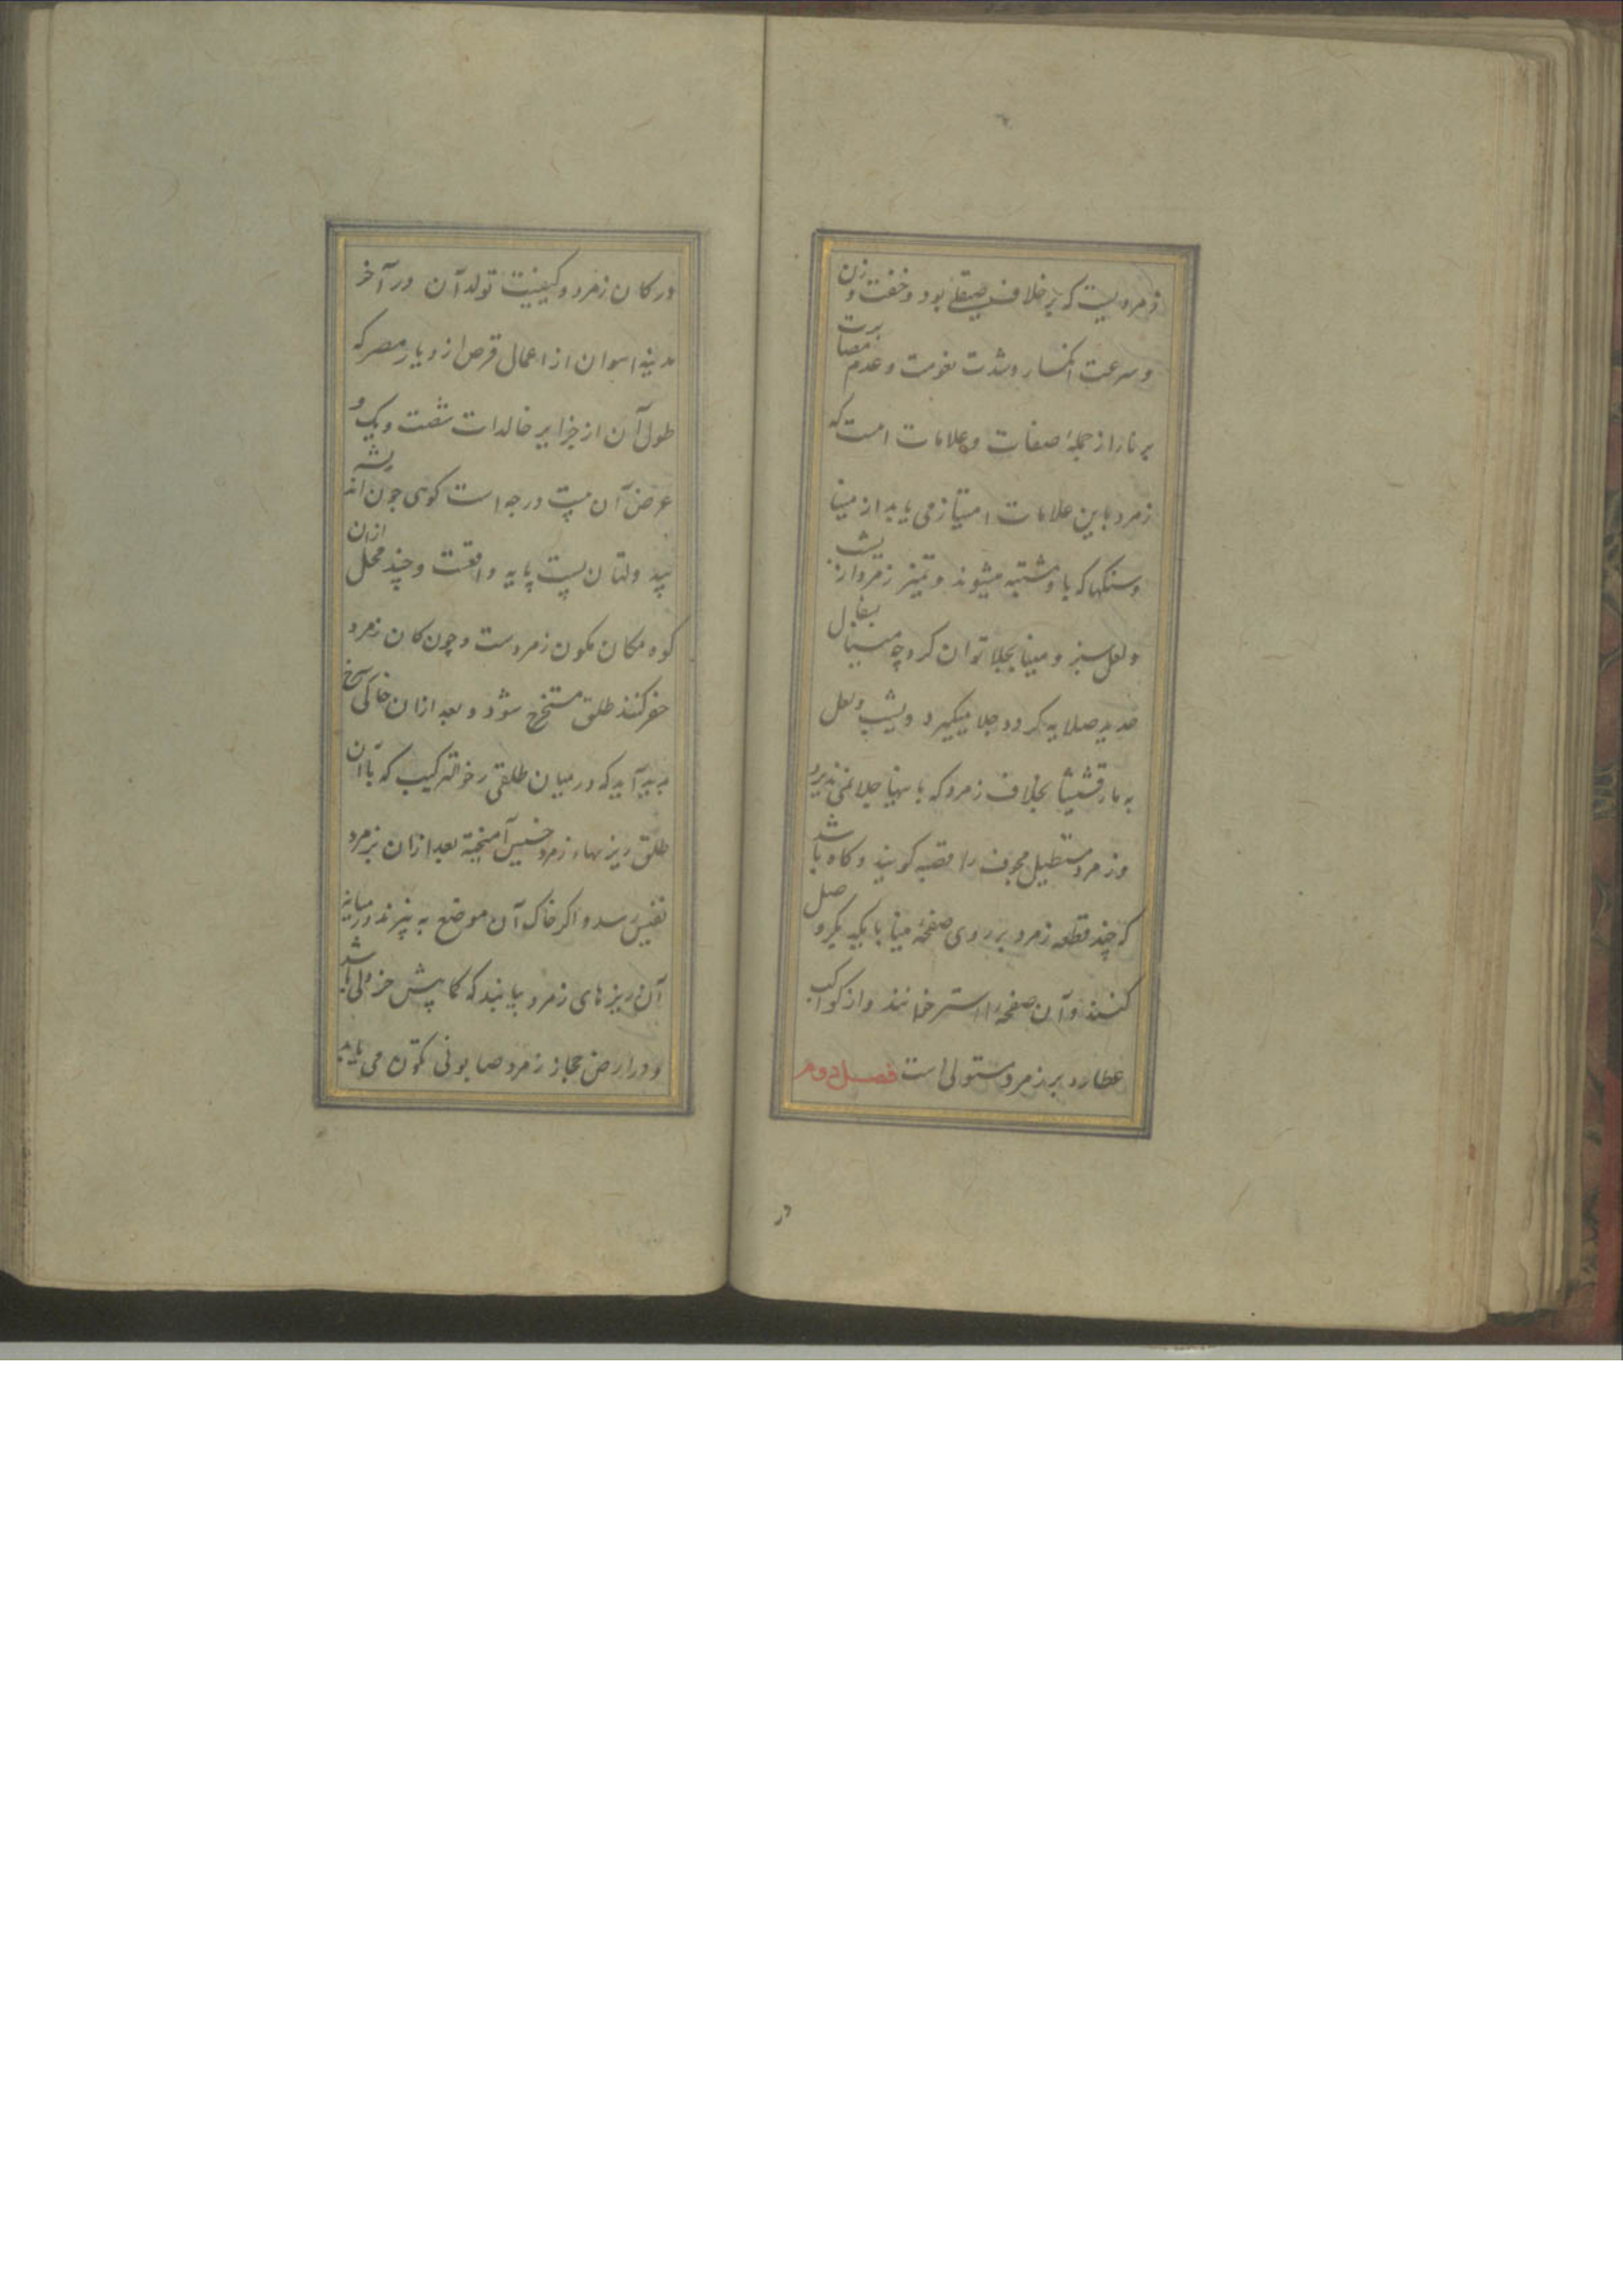 زمردیست که بر خلاف صیقلی بود و خفت وزن
و سرعت انکسار و شدت نعومت و عدم مصابرت
بر نار از جملهٔ صفات و علامات است که
زمرد باین علامات امتیاز می یابد از مینا
و سنکها که با و مشتبه میشوند و تمیز زمرد از یشب
و لعل سبز و مینا بجلا توان کرد چه مینا
حدید صلایه کرده جلا میکیرد و یشب و لعل
به مارقشیشا بخلاف زمرد که باینها جلا نمی پذیرد
و زمرد مستطیل مجوف را قصبه کویند و کاه باشد
که چند قطعه زمرد بر روی صفحهٔ مینا با یکدیکر وصل
کنند و آن صفحه را استر خوانند و از کواکب
عطارد بر زمرد مستولی است فصل دوم
در
در کان زمرد و کیفیت تولد آن در آخر
مدینه اسوان از اعمال قوص از دیار مصر که
طول آن از جزایر خالدات شصت و یک و
عرض آن بیست درجه است کوهی چون
پایه واقعست و چند محل ازان
کوه مکان تکون زمردست و چون کان زمرد
حفر کنند طلق مستخرج شود و بعد ازان خاکی سرخ
پدید آید که در میان طلقی رخو الترکیب که با آن
طلق ریزهاء زمرد خسیس آمیخته بعد ازان بزمرد
نفیس رسد و اکر خاک آن موضع به پزند در میانه
آن ریزهای زمرد یابند که کاپیش خردلی باشد
و در ارض حجاز زمرد صابونی تکون می یابد